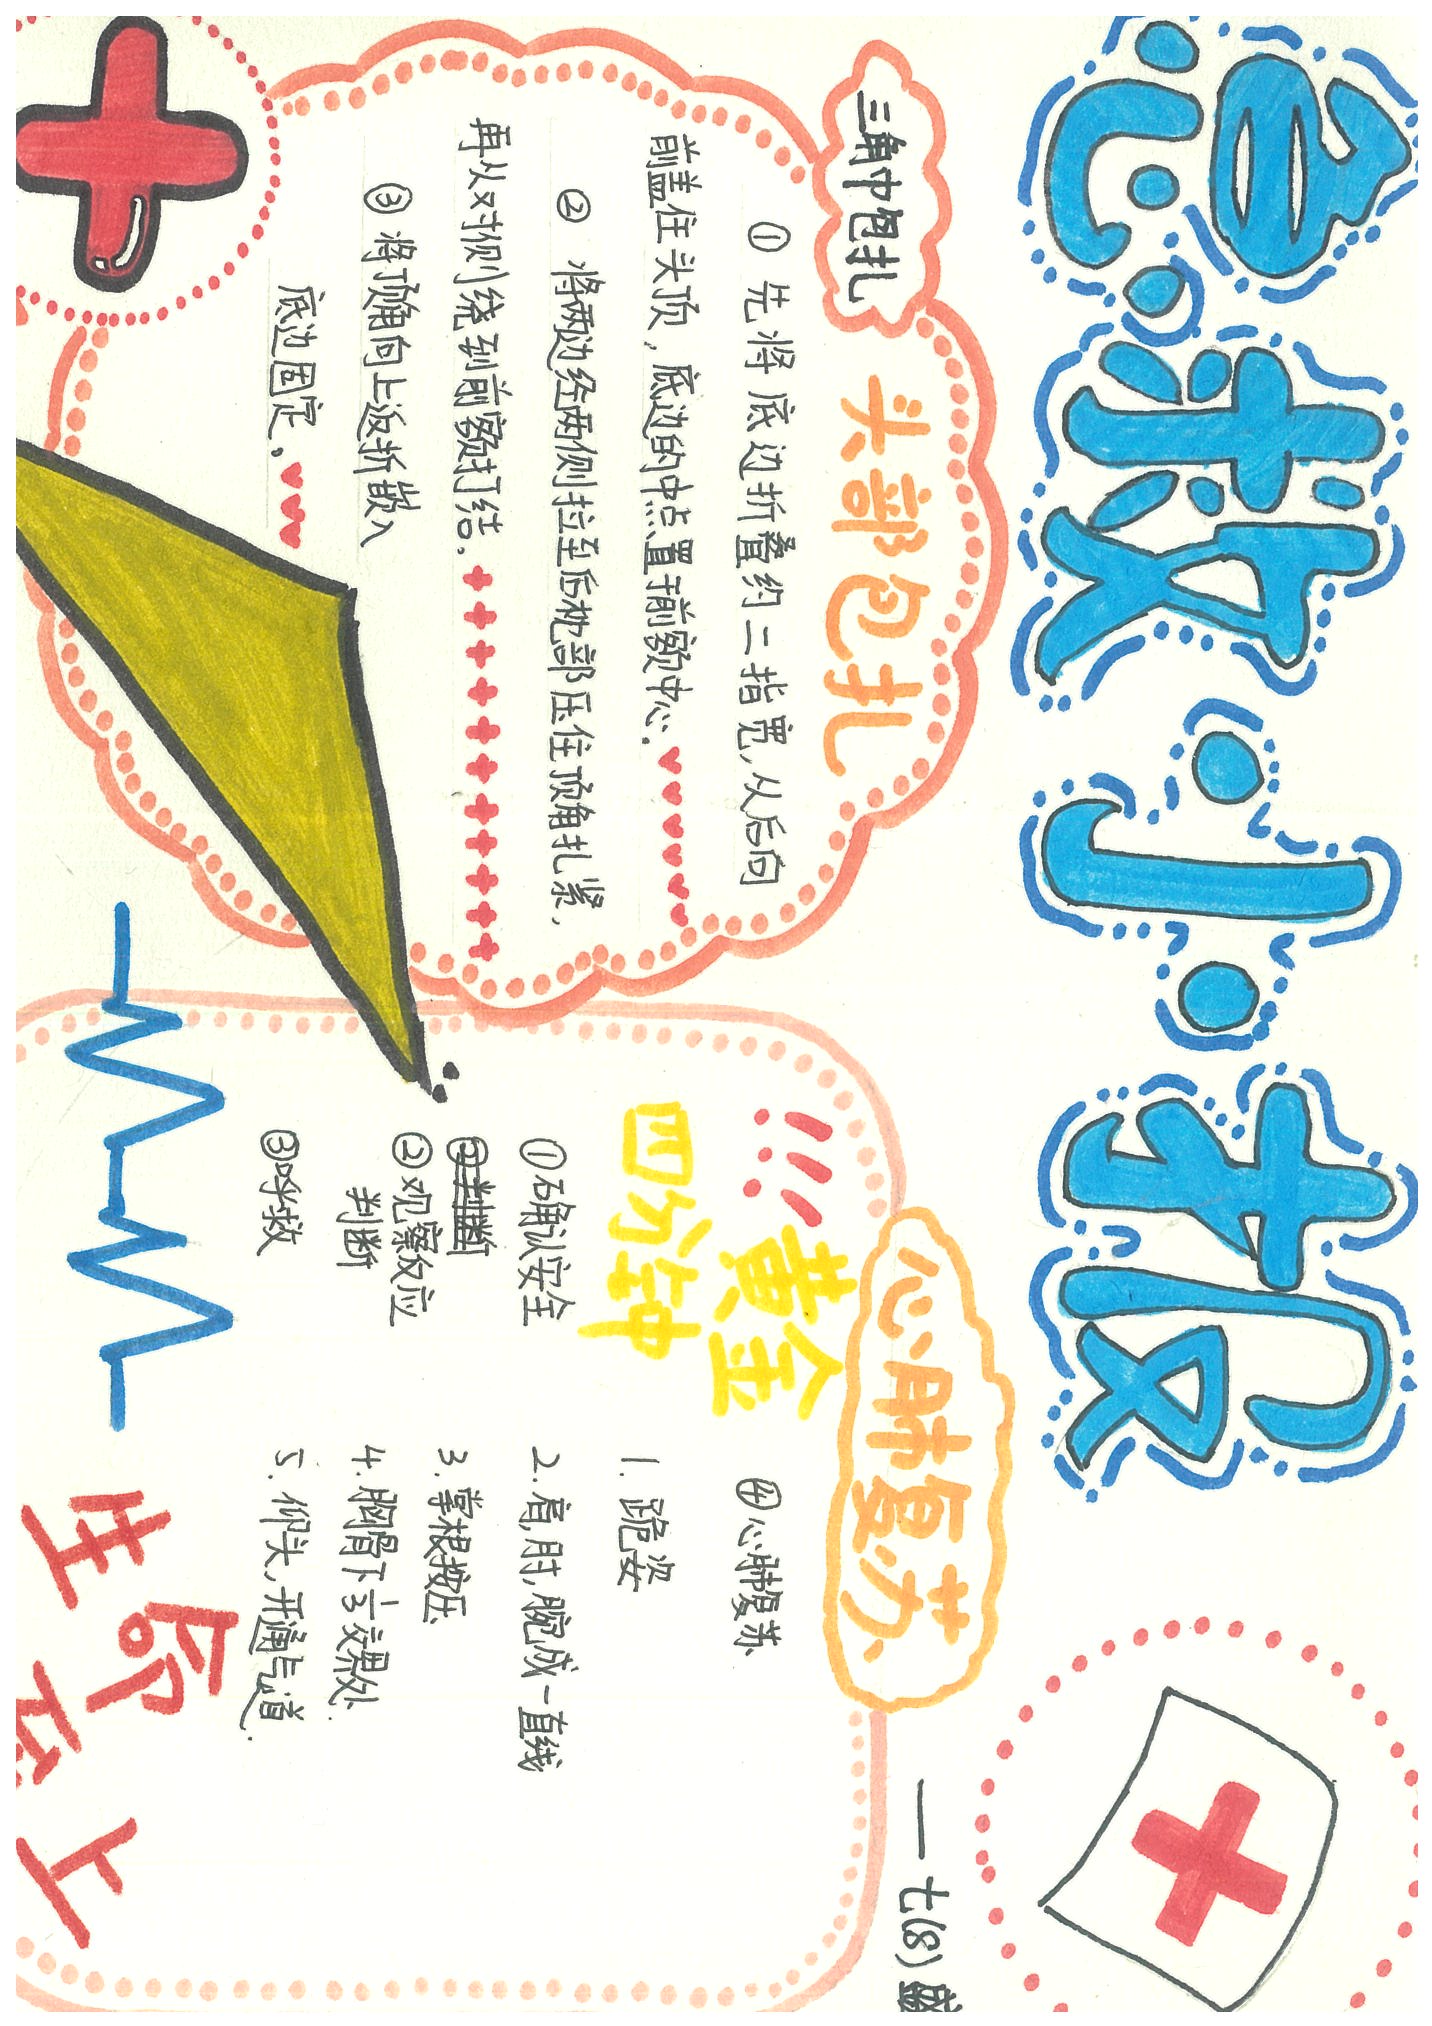 急救小报
——七(8) 盛
三角巾包扎
头部包扎
① 先将底边折叠约二指宽,从后向
前盖住头顶,底边的中点置于前额中心.
② 将两边经两侧拉至后枕部压住顶角扎紧,
再从对侧绕到前额打结.
③ 将顶角向上返折嵌入
底边固定。
心肺复苏
!!!黄金
四分钟
①确认安全
②判断
②观察反应
判断
③呼救
④心肺复苏
1. 跪姿
2. 肩,肘,腕成一直线
3. 掌根按压
4. 胸骨下1/3交界处.
5. 仰头,开通气道.
生命至上